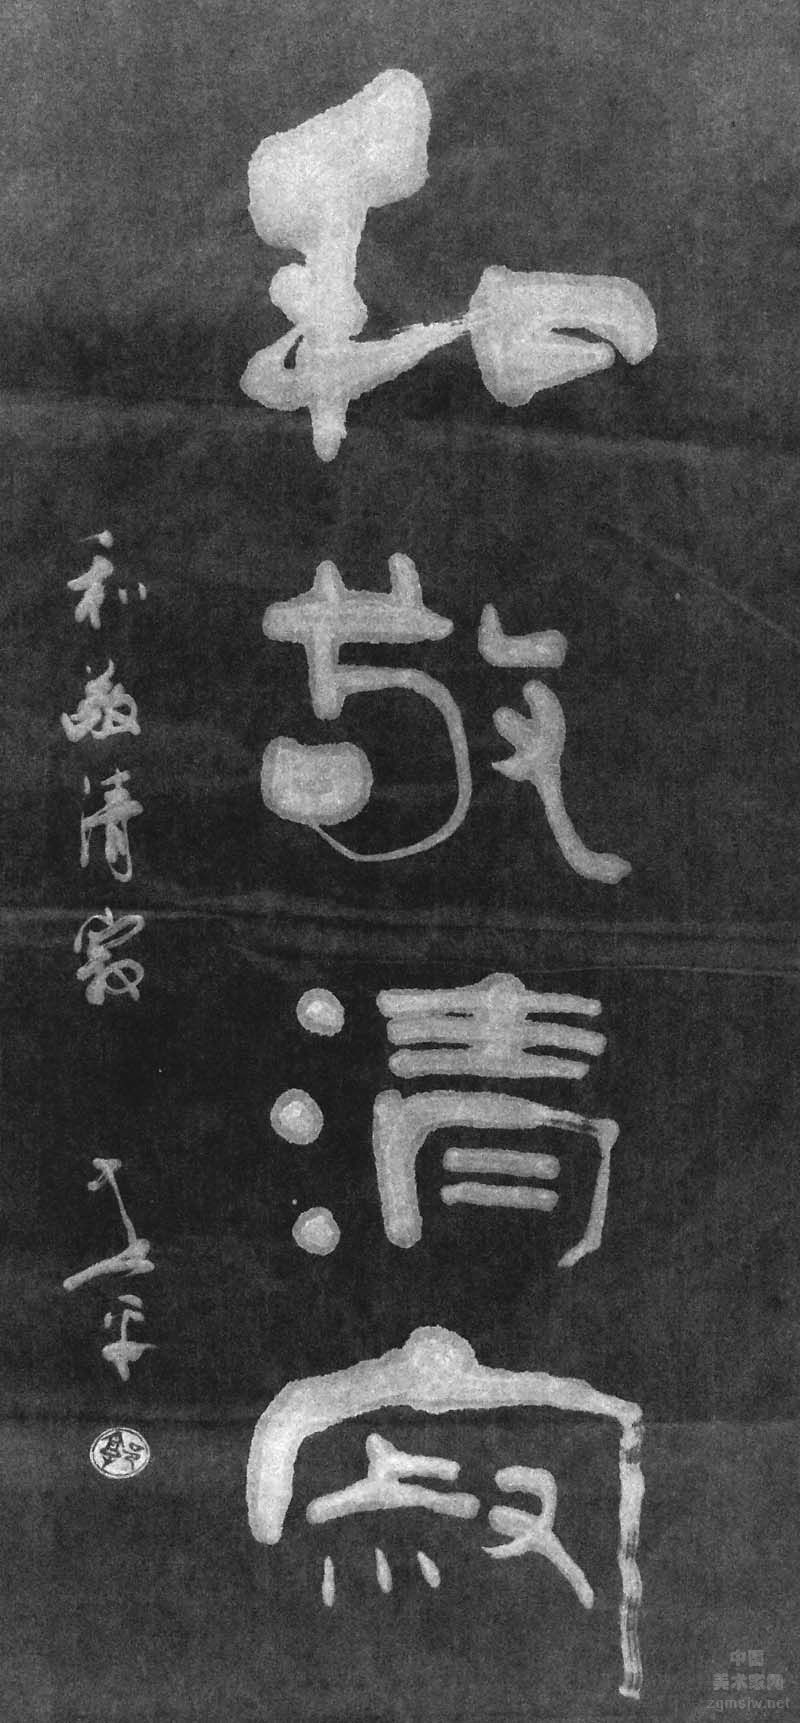 和敬清寂
和敬清寂
中国
美术家网
zqmsjw.net